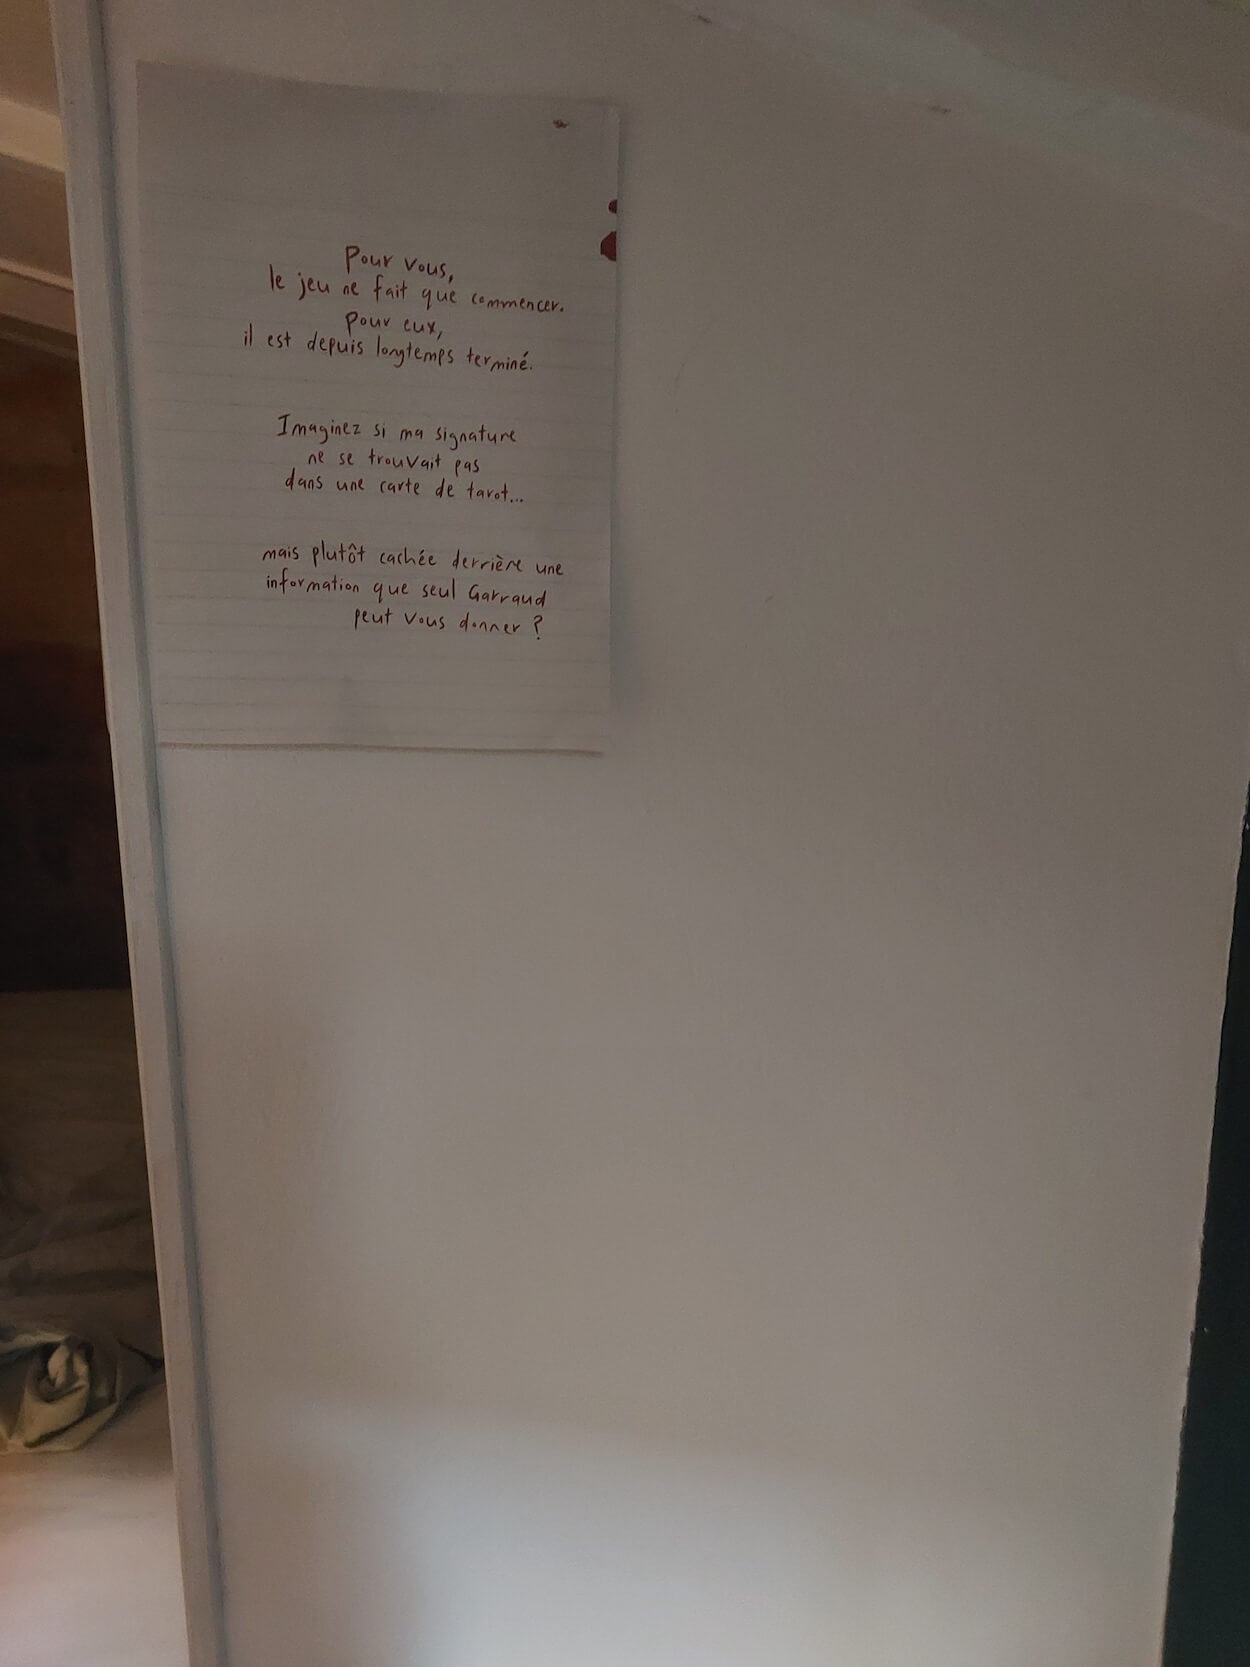 Pour vous,
le jeu ne fait que commencer.
Pour eux,
il est depuis longtemps terminé.
Imaginez si ma signature
ne se trouvait pas
dans une carte de tarot...
mais plutôt cachée derrière une
information que seul Garraud
peut vous donner ?